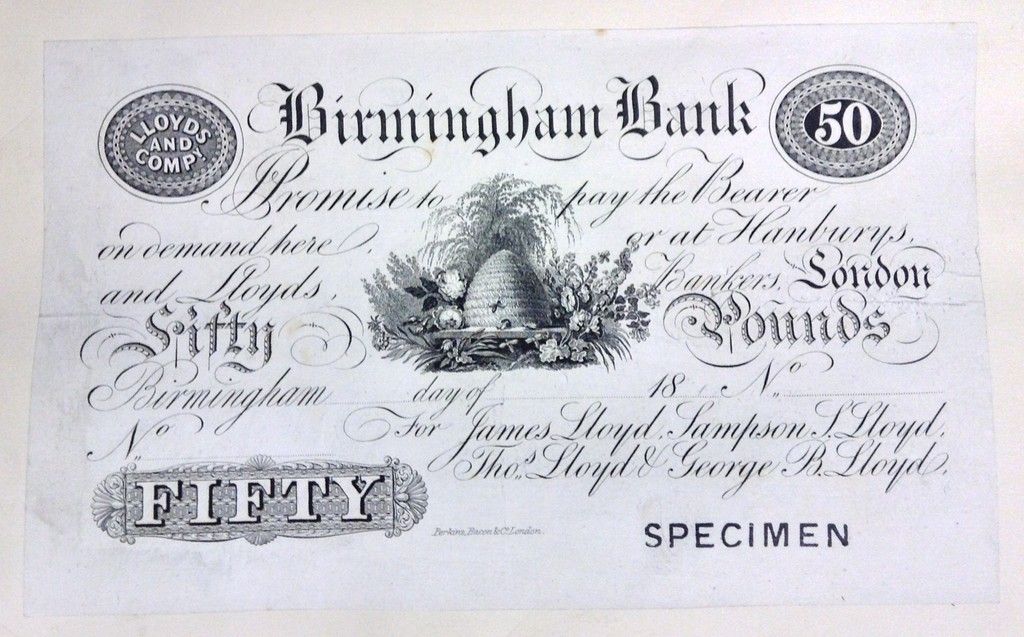 LLOYDS
AND
COMPY
Birmingham Bank
50
Promise to pay the Bearer
on demand here, or at Hanburys,
and Lloyds, Bankers, London
Fifty Pounds
Birmingham day of 18 No
No For James Lloyd, Sampson S. Lloyd,
Thos. Lloyd & George B. Lloyd.
FIFTY
Perkins, Bacon & Co. London.
SPECIMEN